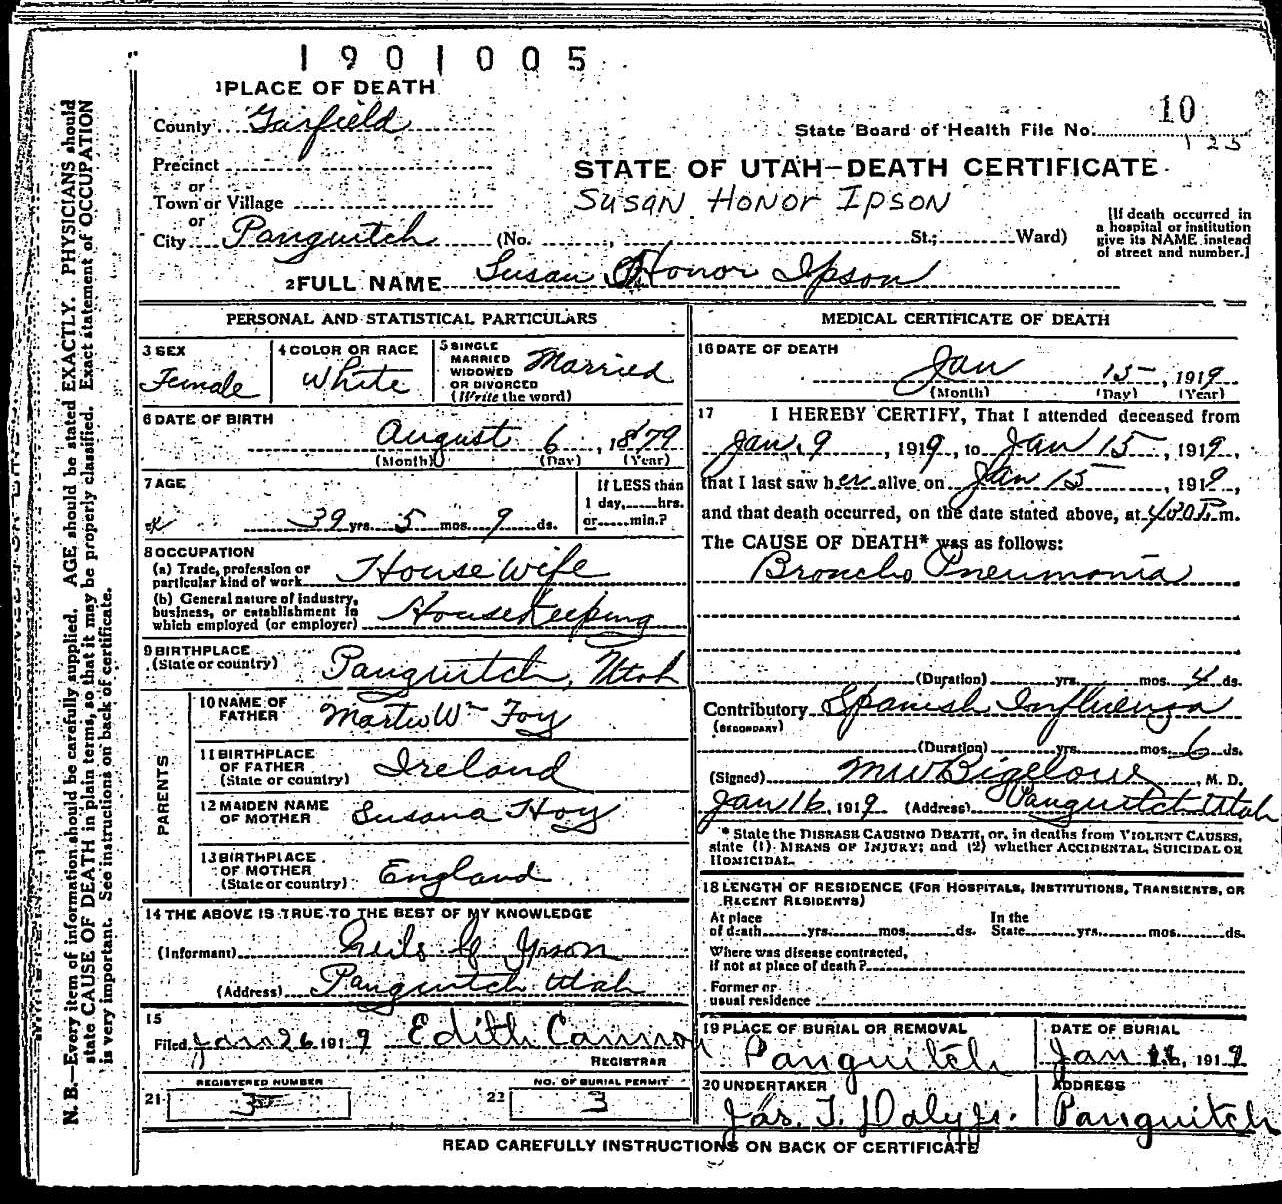 1901005
1 PLACE OF DEATH
County Garfield
10
State Board of Health File No.
125
Precinct
or
STATE OF UTAH—DEATH CERTIFICATE
Town or Village
SUSAN HONOR IPSON
or
City Panguitch (No. , St.; Ward)
[If death occurred in
a hospital or institution
give its NAME instead
of street and number.]
2 FULL NAME Susan Honor Ipson
PERSONAL AND STATISTICAL PARTICULARS
3 SEX
Female
4 COLOR OR RACE
White
5 SINGLE
MARRIED
WIDOWED
OR DIVORCED
(Write the word)
Married
6 DATE OF BIRTH
August 6, 1879
(Month) (Day) (Year)
7 AGE
39 yrs. 5 mos. 9 ds.
If LESS than
1 day, hrs.
or min.?
8 OCCUPATION
(a) Trade, profession or
particular kind of work House Wife
(b) General nature of industry,
business, or establishment in
which employed (or employer) Housekeeping
9 BIRTHPLACE
(State or country) Panguitch, Utah
PARENTS
10 NAME OF
FATHER Wm Foy
11 BIRTHPLACE
OF FATHER
(State or country) Ireland
12 MAIDEN NAME
OF MOTHER Susana Hoy
13 BIRTHPLACE
OF MOTHER
(State or country) England
14 THE ABOVE IS TRUE TO THE BEST OF MY KNOWLEDGE
(Informant) Neils Ipson
(Address) Panguitch Utah
15
Filed Jan 26 1919 Edith Cannon
REGISTRAR
REGISTERED NUMBER
21 3
NO. OF BURIAL PERMIT
22 3
MEDICAL CERTIFICATE OF DEATH
16 DATE OF DEATH
Jan 15, 1919
(Month) (Day) (Year)
17 I HEREBY CERTIFY, That I attended deceased from
Jan. 9, 1919, to Jan 15, 1919,
that I last saw her alive on Jan 15, 1919,
and that death occurred, on the date stated above, at 400 P.m.
The CAUSE OF DEATH* was as follows:
Broncho Pneumonia
(Duration) yrs. mos. 4 ds.
Contributory Spanish Influenza
(SECONDARY)
(Duration) yrs. mos. 6 ds.
(Signed) M W Bigelow, M. D.
Jan 16, 1919 (Address) Panguitch Utah
* State the DISEASE CAUSING DEATH, or, in deaths from VIOLENT CAUSES,
state (1) MEANS OF INJURY; and (2) whether ACCIDENTAL, SUICIDAL OR
HOMICIDAL.
18 LENGTH OF RESIDENCE (FOR HOSPITALS, INSTITUTIONS, TRANSIENTS, OR
RECENT RESIDENTS)
At place
of death yrs. mos. ds.
In the
State yrs. mos. ds.
Where was disease contracted,
if not at place of death?
Former or
usual residence
19 PLACE OF BURIAL OR REMOVAL
Panguitch
DATE OF BURIAL
Jan 16, 1919
20 UNDERTAKER
Jas. T. Daly Jr.
ADDRESS
Panguitch
READ CAREFULLY INSTRUCTIONS ON BACK OF CERTIFICATE
N. B.—Every item of information should be carefully supplied. AGE should be stated EXACTLY. PHYSICIANS should
state CAUSE OF DEATH in plain terms, so that it may be properly classified. Exact statement of OCCUPATION
is very important. See instructions on back of certificate.